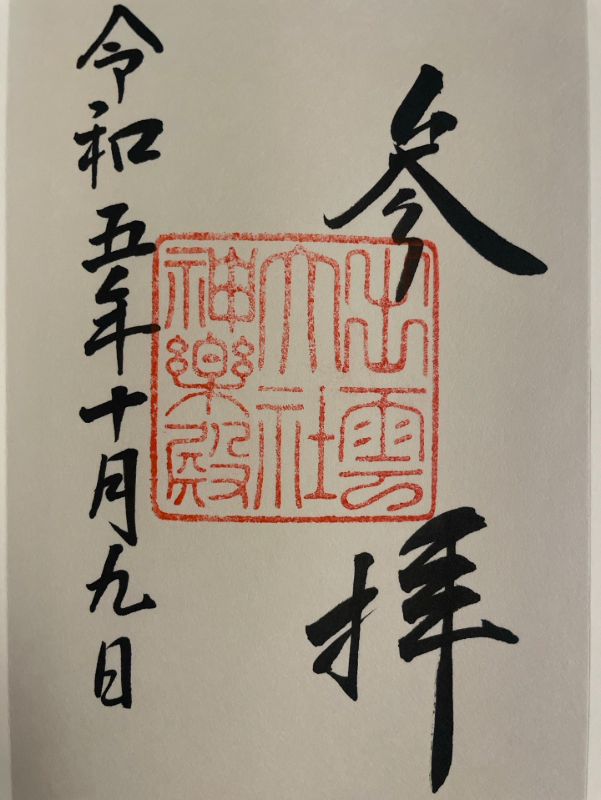 参拝
出雲
大社
神楽殿
令和五年十月九日